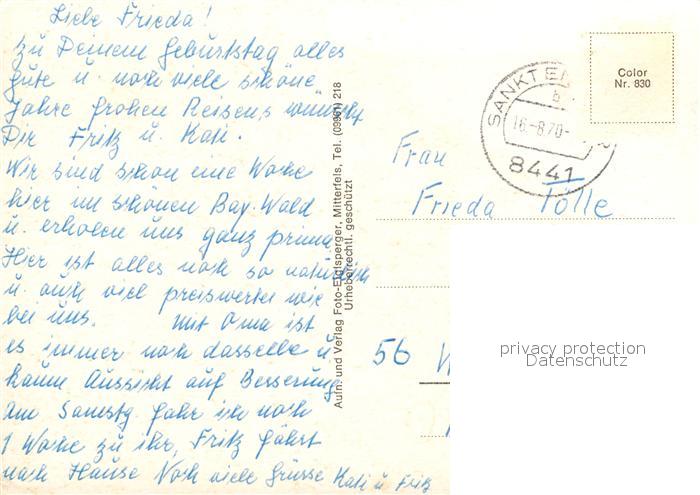 Liebe Frieda!
zu Deinem Geburtstag alles
gute u. noch viele schöne
Jahre frohen Reisens wünschen
Dir Fritz u. Kati.
Wir sind schon eine Woche
hier im schönen Bay. Wald
u. erholen uns ganz prima.
Hier ist alles noch so natürlich
u. auch viel preiswerter wie
bei uns. Mit Oma ist
es immer noch dasselbe u.
kaum Aussicht auf Besserung
am Samstg fahr ich noch
1 Woche zu ihr, Fritz fährt
nach Hause Noch viele Grüsse Kati u Fritz
Aufn. und Verlag Foto-Elglsperger, Mitterfels, Tel. (09961) 218
Urheberrechtl. geschützt
SANKT
16.-8.70-
8441
Color
Nr. 830
Frau
Frieda Tölle
56 W
privacy protection
Datenschutz